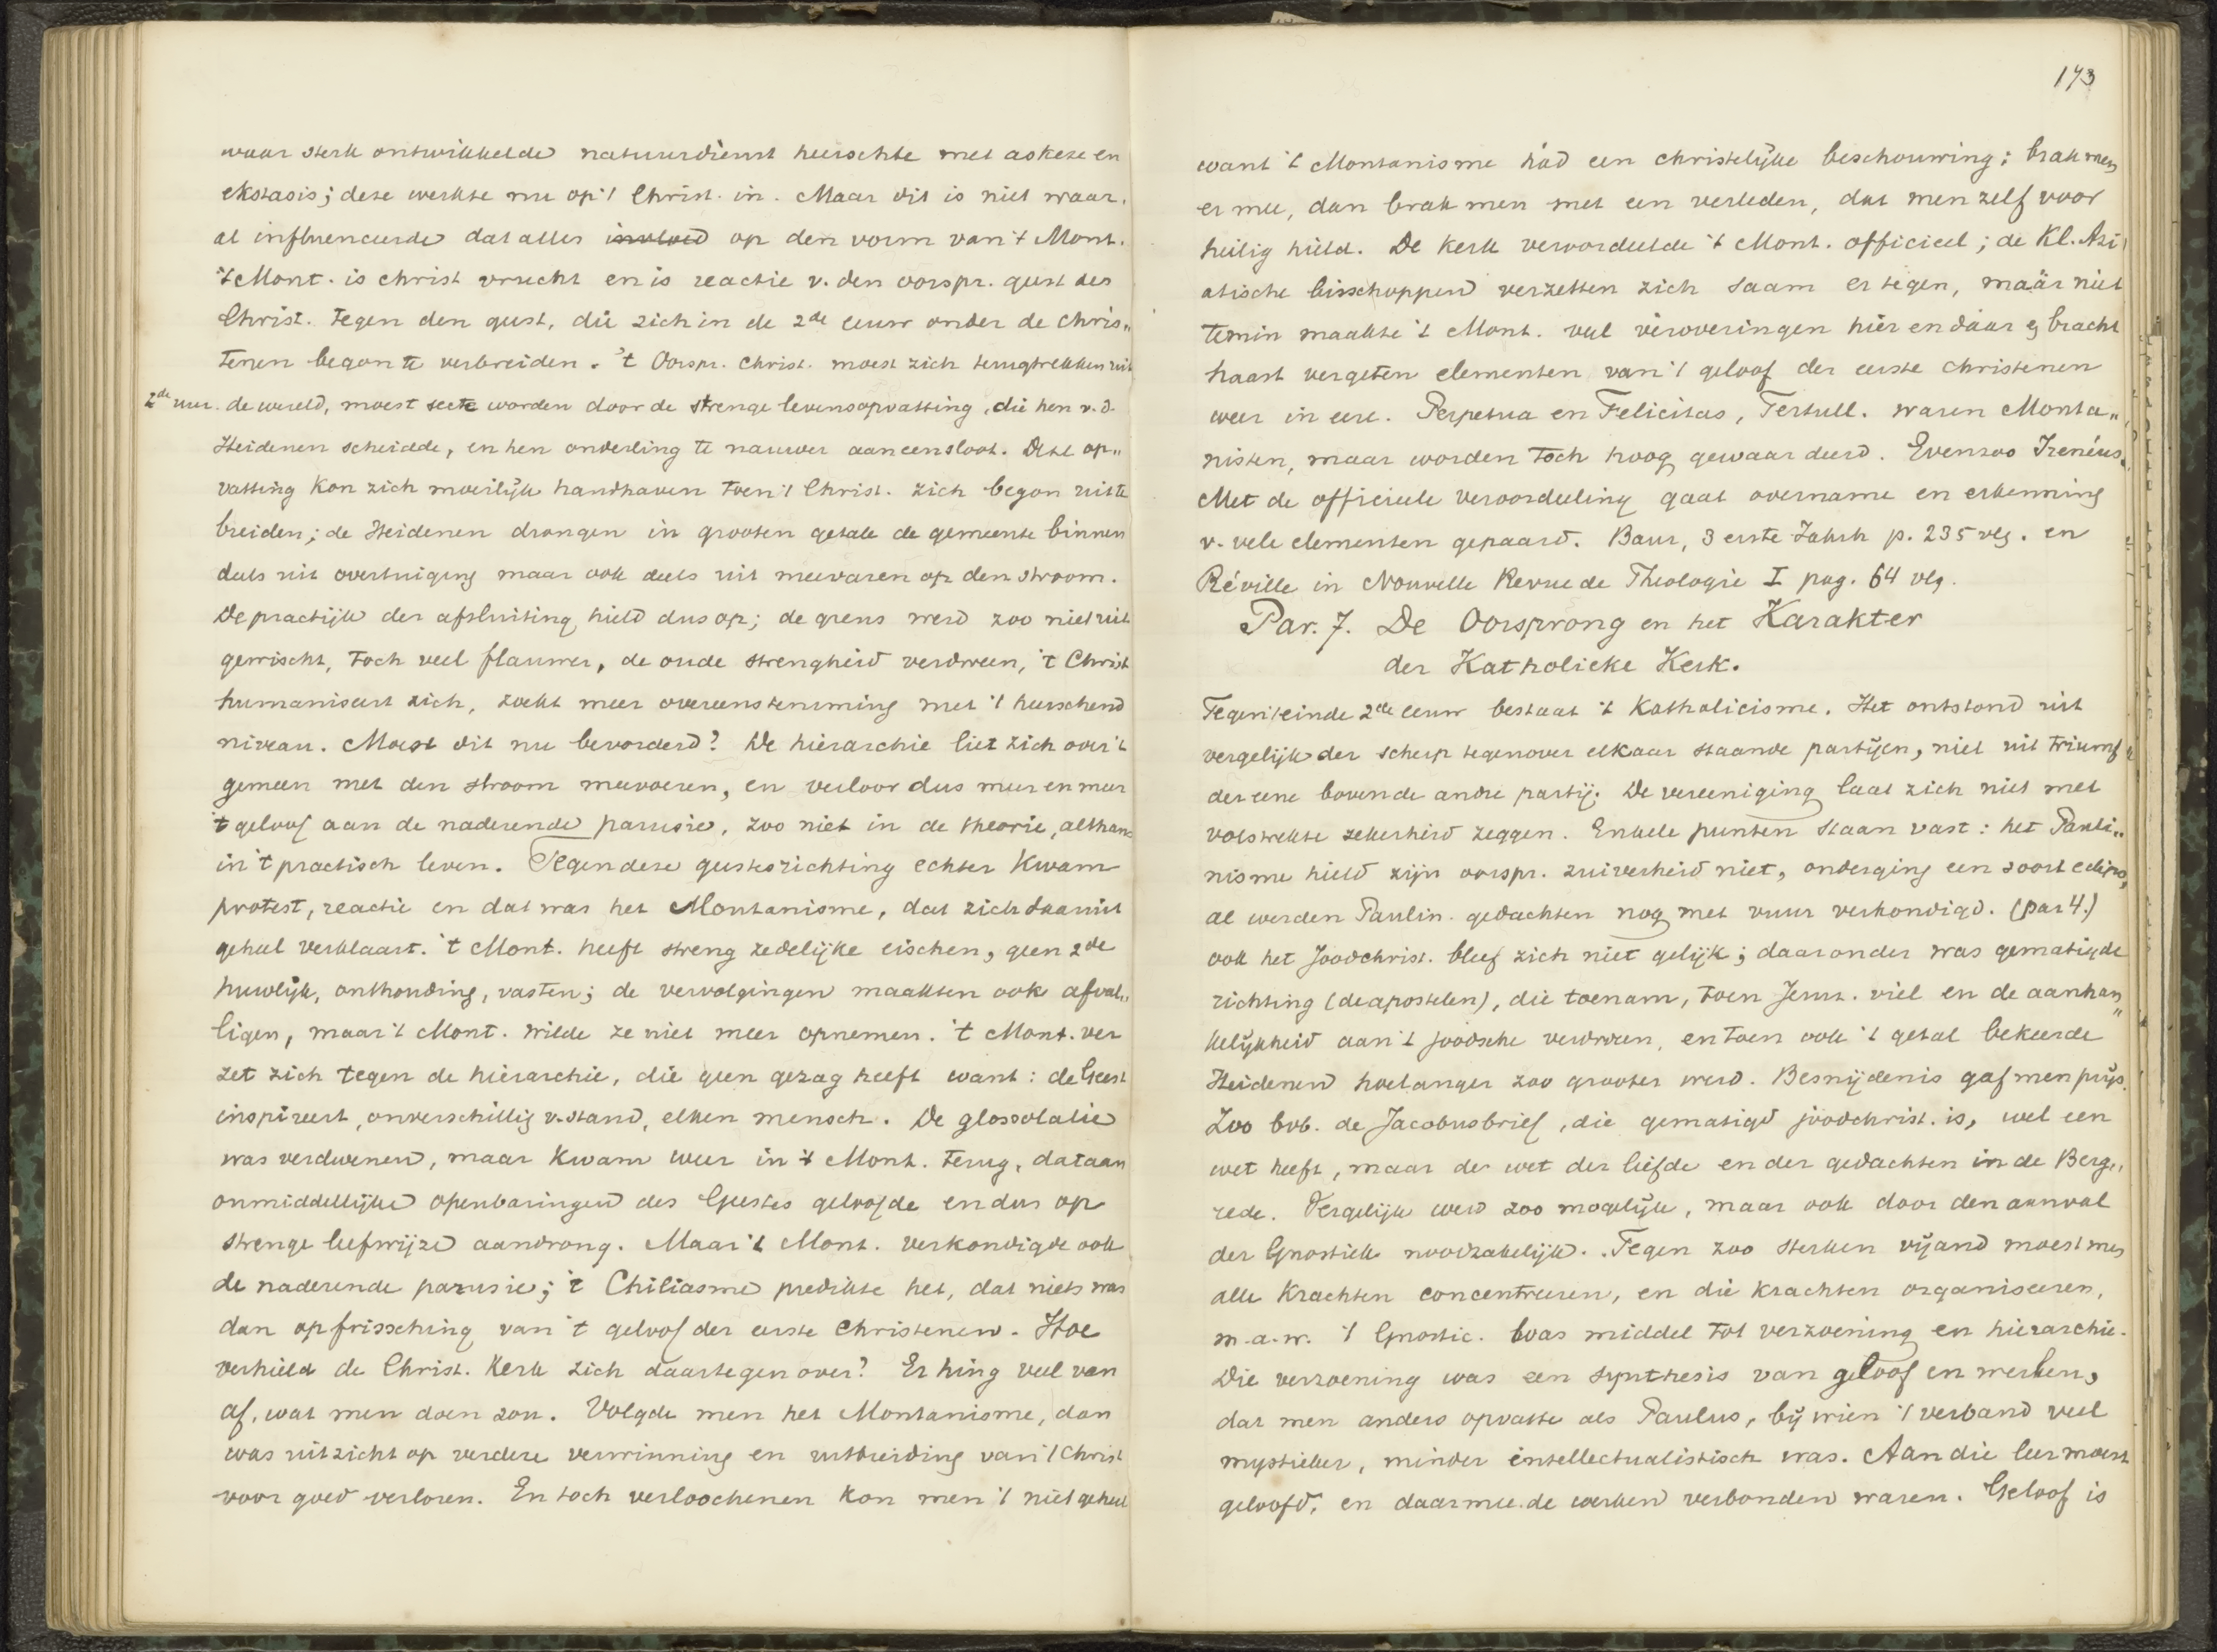 waar sterk ontwikkelde natuurdienst heerschte met askese en
ekstasis; deze werkte nu op 't Christ. in. Maar dit is niet waar,
al influenceerde dat alles invloed op den vorm van 't Mont.
't Mont. is christ vrucht en is reactie v. den oorspr. geest des
Christ. tegen den geest, die zich in de 2de eeuw onder de chris„
tenen begon te verbreiden. 't Oorspr. Christ. moest zich terugtrekken uit
2de uur. de wereld, moest secte worden door de strenge levensopvatting, die hen v. d.
Heidenen scheidde, en hen onderling te nauwer aaneensloot. Deze op„
vatting kon zich moeilijk handhaven toen 't Christ. zich begon uit te
breiden; de Heidenen drongen in grooten getale de gemeente binnen
deels uit overtuiging maar ook deels uit meevaren op den stroom.
De practijk der afsluiting hield dus op; de grens werd zoo niet uit
gewischt, toch veel flauwer, de oude strengheid verdween, 't Christ
humaniseert zich, zoekt meer overeenstemming met 't heerschend
niveau. Moest dit nu bevorderd? De hierarchie liet zich over 't
gemeen met den stroom meevoeren, en verloor dus meer en meer
't geloof aan de naderende parusie, zoo niet in de theorie, althans
in 't practisch leven. Tegen deze geestesrichting echter kwam
protest, reactie en dat was het Montanisme, dat zich daaruit
geheel verklaart. 't Mont. heeft streng zedelijke eischen, geen 2de
huwlijk, onthouding, vasten; de vervolgingen maakten ook afval„
ligen, maar 't Mont. wilde ze niet meer opnemen. 't Mont. ver
zet zich tegen de hierarchie, die geen gezag heeft want: de Geest
inspireert, onverschillig v. stand, elken mensch. De glossolalie
was verdwenen, maar kwam weer in 't Mont. terug, dat aan
onmiddellijke openbaringen des Geestes geloofde en dus op
strenge leefwijze aandrong. Maar 't Mont. verkondigde ook
de naderende parusie; 't Chiliasme predikte het, dat niets was
dan opfrissching van 't geloof der eerste Christenen. Hoe
verhield de Christ. Kerk zich daartegenover? Er hing veel van
af, wat men doen zou. Volgde men het Montanisme, dan
was uitzicht op verdere verwinning en uitbreiding van 't Christ
voor goed verloren. En toch verloochenen kon men 't niet geheel
173
want 't Montanisme hád een christelijke beschouwing; brak men
er mee, dan brak men met een verleden, dat men zelf voor
heilig hield. De kerk veroordeelde 't Mont. officieel; de Kl. Azi
atische bisschoppen verzetten zich saam er tegen, maar niet
temin maakte 't Mont. veel veroveringen hier en daar & bracht
haast vergeten elementen van 't geloof der eerste christenen
weer in eere. Perpetua en Felicitas, Tertull. waren Monta„
nisten, maar worden toch hoog gewaardeerd. Evenzoo Irenéus.
Met de officieele veroordeeling gaat overname en erkenning
v. vele elementen gepaard. Baur, 3 erste Jahrh p. 235 vlg. en
Réville in Nouvelle Revue de Theologie I pag. 64 vlg.
Par. 7. De Oorsprong en het Karakter
der Katholieke Kerk.
Tegen 't einde 2de eeuw bestaat 't Katholicisme. Het ontstond uit
vergelijk der scherp tegenover elkaar staande partijen, niet uit triumf
der eene boven de andre partij. De vereeniging laat zich niet met
volstrekte zekerheid zeggen. Enkele punten staan vast: het Pauli„
nisme hield zijn oorspr. zuiverheid niet, onderging een soort eclips,
al werden Paulin. gedachten nog met vuur verkondigd. (par 4.)
ook het Joodchrist. bleef zich niet gelijk; daaronder was gematigde
richting (de apostelen), die toenam, toen Jerus. viel en de aanhan„
kelijkheid aan 't joodsche verdween, en toen ook 't getal bekeerde
Heidenen hoelanger zoo grooter werd. Besnijdenis gaf men prijs.
Zoo bvb. de Jacobusbrief, die gematigd joodchrist. is, wel een
wet heeft, maar de wet der liefde en der gedachten in de Berg„
rede. Vergelijk werd zoo mogelijk, maar ook door den aanval
der Gnostiek noodzakelijk. Tegen zoo sterken vijand moest men
alle krachten concentreeren, en die krachten organiseeren,
m.a.w. 't Gnostic. was middel tot verzoening en hierarchie.
Die verzoening was een synthesis van geloof en werken,
dat men anders opvatte als Paulus, bij wien 't verband veel
mystieker, minder intellectualistisch was. Aan die leer moest
geloofd, en daarmee de werken verbonden waren. Geloof is